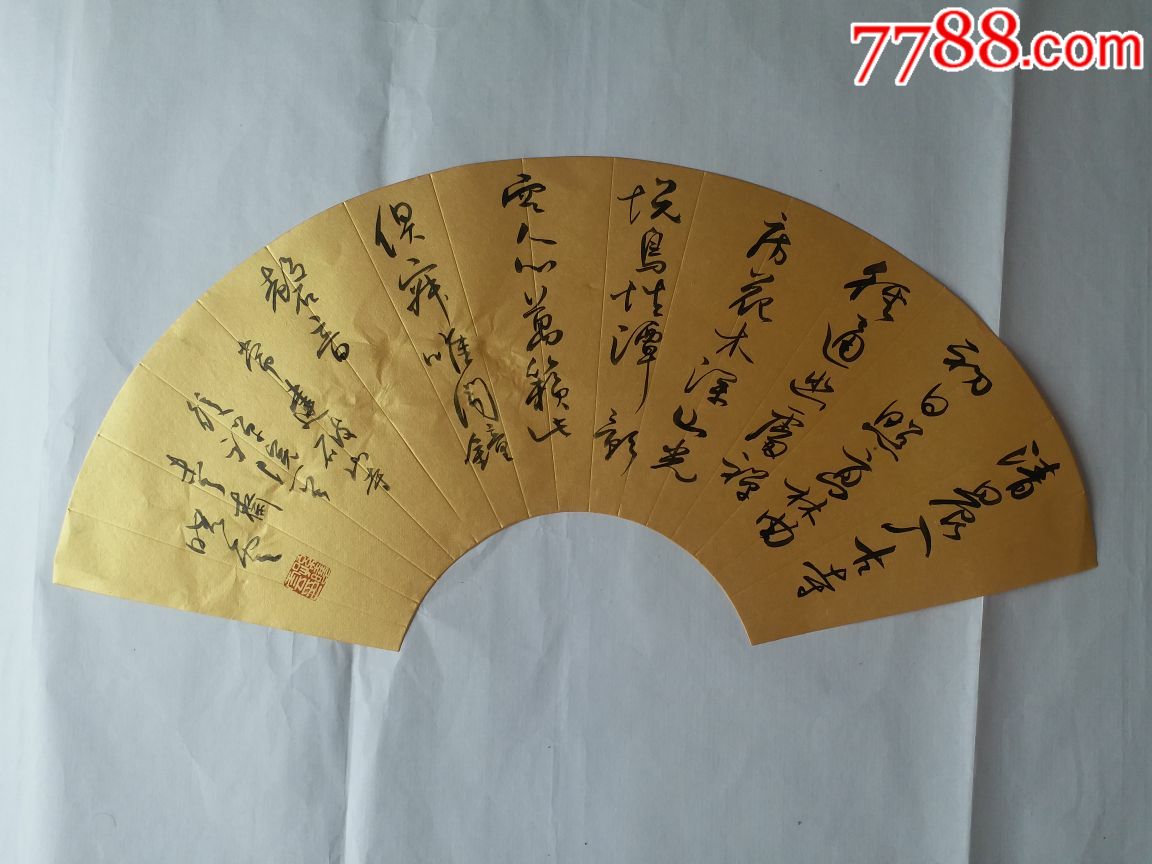 7788.com
清晨入古寺
初日照高林曲
径通幽處禅
房花木深山光
悦鳥性潭影
空人心萬籟此
俱寂唯闻鐘
磬音
常建破山寺